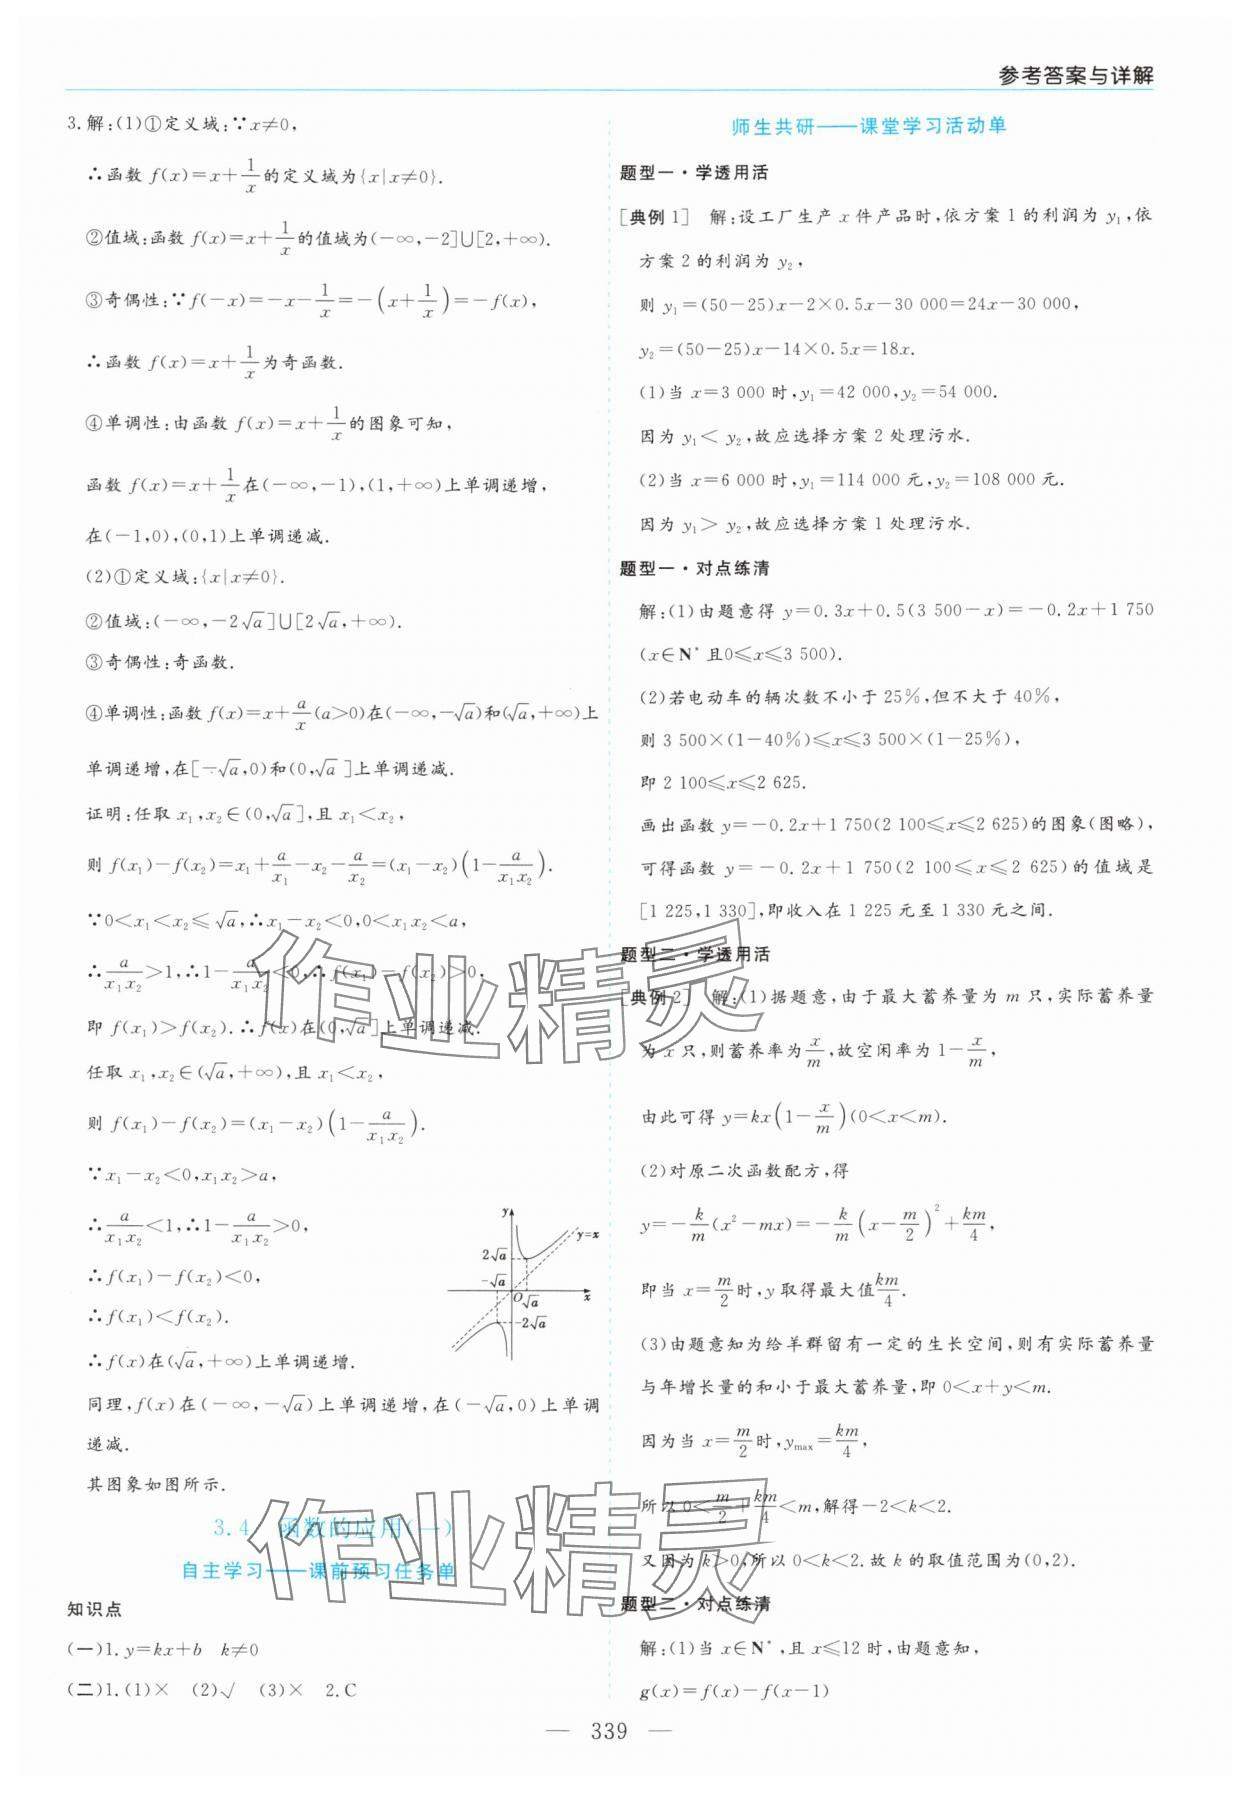 参考答案与详解
3.解:(1)①定义域:∵x≠0,
∴函数 f(x)=x+1/x的定义域为{x|x≠0}.
②值域:函数 f(x)=x+1/x的值域为(-∞,-2]∪[2,+∞).
③奇偶性:∵f(-x)=-x-1/x=-(x+1/x)=-f(x),
∴函数 f(x)=x+1/x为奇函数.
④单调性:由函数 f(x)=x+1/x的图象可知,
函数 f(x)=x+1/x在(-∞,-1),(1,+∞)上单调递增,
在(-1,0),(0,1)上单调递减.
(2)①定义域:{x|x≠0}.
②值域:(-∞,-2√a]∪[2√a,+∞).
③奇偶性:奇函数.
④单调性:函数 f(x)=x+a/x(a>0)在(-∞,-√a)和(√a,+∞)上
单调递增,在[-√a,0)和(0,√a]上单调递减.
证明:任取 x₁,x₂∈(0,√a],且 x₁<x₂,
则 f(x₁)-f(x₂)=x₁+a/x₁-x₂-a/x₂=(x₁-x₂)(1-a/(x₁x₂)).
∵0<x₁<x₂≤√a,∴x₁-x₂<0,0<x₁x₂<a,
∴a/(x₁x₂)>1,∴1-a/(x₁x₂)<0,∴f(x₁)-f(x₂)>0,
即 f(x₁)>f(x₂).∴f(x)在(0,√a]上单调递减.
任取 x₁,x₂∈(√a,+∞),且 x₁<x₂,
则 f(x₁)-f(x₂)=(x₁-x₂)(1-a/(x₁x₂)).
∵x₁-x₂<0,x₁x₂>a,
∴a/(x₁x₂)<1,∴1-a/(x₁x₂)>0,
∴f(x₁)-f(x₂)<0,
∴f(x₁)<f(x₂).
∴f(x)在(√a,+∞)上单调递增.
y
y=x
2√a
-√a
O √a x
-2√a
同理,f(x)在(-∞,-√a)上单调递增,在(-√a,0)上单调
递减.
其图象如图所示.
3.4 函数的应用(一)
自主学习——课前预习任务单
知识点
(一)1.y=kx+b k≠0
(二)1.(1)× (2)√ (3)× 2.C
师生共研——课堂学习活动单
题型一·学透用活
[典例1] 解:设工厂生产 x 件产品时,依方案1的利润为 y₁,依
方案2的利润为 y₂,
则 y₁=(50-25)x-2×0.5x-30 000=24x-30 000,
y₂=(50-25)x-14×0.5x=18x.
(1)当 x=3 000 时,y₁=42 000,y₂=54 000.
因为 y₁<y₂,故应选择方案2处理污水.
(2)当 x=6 000 时,y₁=114 000 元,y₂=108 000 元.
因为 y₁>y₂,故应选择方案1处理污水.
题型一·对点练清
解:(1)由题意得 y=0.3x+0.5(3 500-x)=-0.2x+1 750
(x∈N*且0≤x≤3 500).
(2)若电动车的辆次数不小于25%,但不大于40%,
则3 500×(1-40%)≤x≤3 500×(1-25%),
即2 100≤x≤2 625.
画出函数 y=-0.2x+1 750(2 100≤x≤2 625)的图象(图略),
可得函数 y=-0.2x+1 750(2 100≤x≤2 625)的值域是
[1 225,1 330],即收入在1 225元至1 330元之间.
题型二·学透用活
[典例2] 解:(1)据题意,由于最大蓄养量为 m 只,实际蓄养量
为 x 只,则蓄养率为x/m,故空闲率为1-x/m,
由此可得 y=kx(1-x/m)(0<x<m).
(2)对原二次函数配方,得
y=-k/m(x²-mx)=-k/m(x-m/2)²+km/4,
即当 x=m/2时,y取得最大值km/4.
(3)由题意知为给羊群留有一定的生长空间,则有实际蓄养量
与年增长量的和小于最大蓄养量,即0<x+y<m.
因为当 x=m/2时,y_max=km/4,
所以0<m/2+km/4<m,解得-2<k<2.
又因为k>0,所以0<k<2.故k的取值范围为(0,2).
题型二·对点练清
解:(1)当 x∈N*,且 x≤12时,由题意知,
g(x)=f(x)-f(x-1)
— 339 —
作业精灵
作业精灵